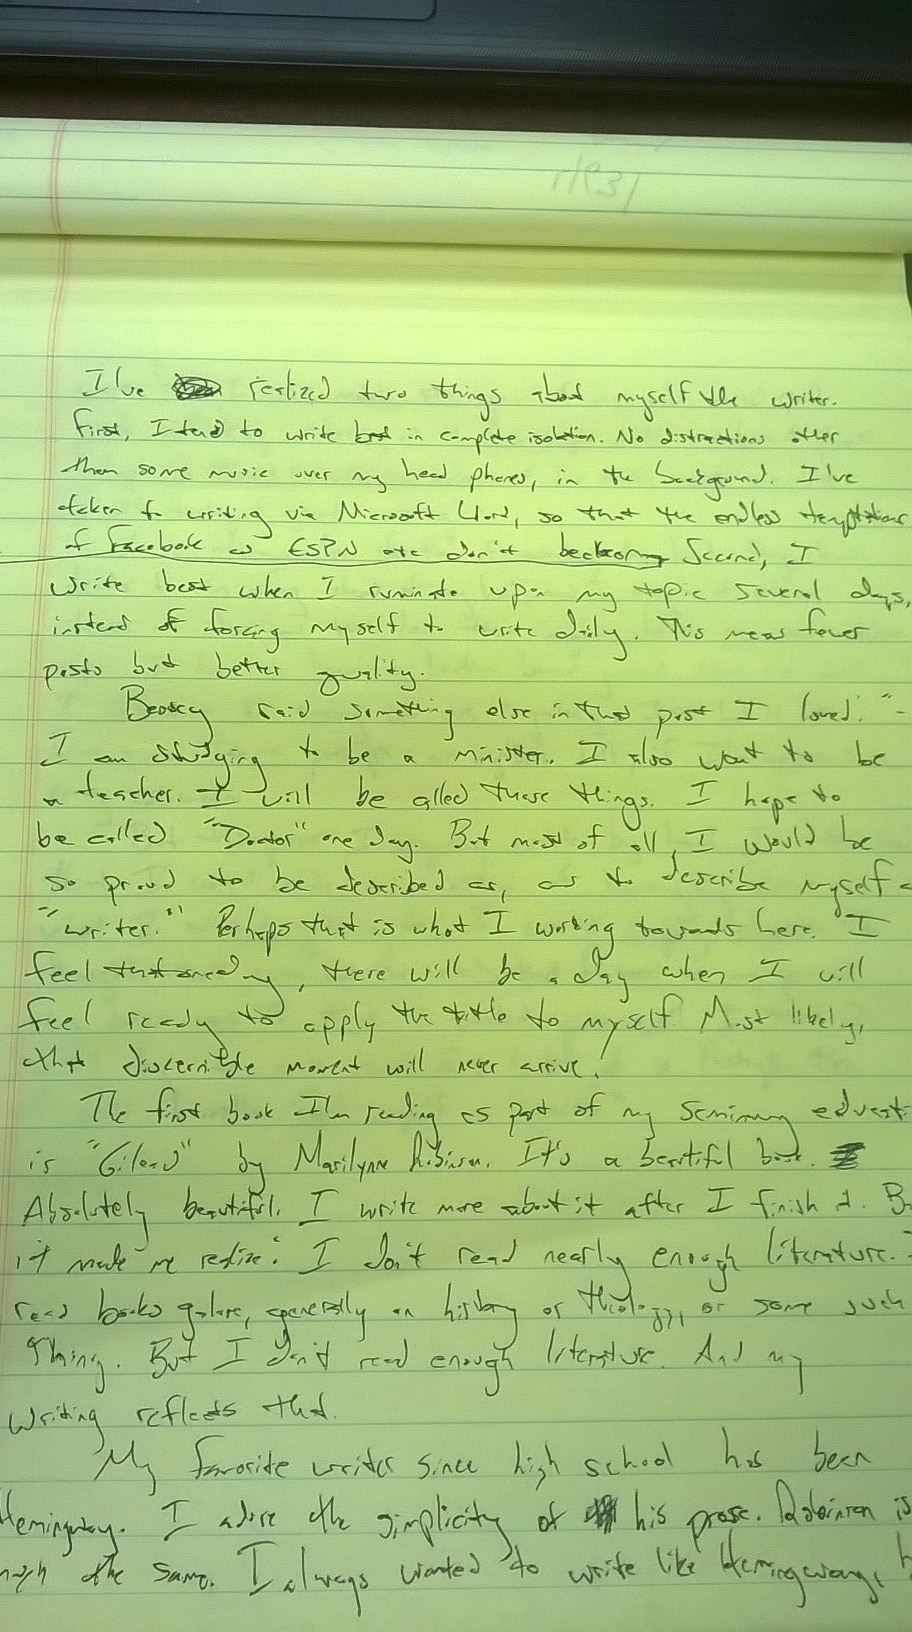 I've realized two things about myself the writer.
First, I tend to write best in complete isolation. No distractions other
than some music over my head phones, in the background. I've
taken to writing via Microsoft Word, so that the endless temptations
of Facebook or ESPN etc don't beckon. Second, I
write best when I ruminate upon my topic several days,
instead of forcing myself to write daily. This means fewer
posts but better quality.
said something else in that post I loved: "
I am studying to be a minister. I also want to be
a teacher. I will be called those things. I hope to
be called "Doctor" one day. But most of all, I would be
so proud to be described as, as to describe myself a
"writer."" Perhaps that is what I working towards here. I
feel that one day, there will be a day when I will
feel ready to apply the title to myself. Most likely,
that discernible moment will never arrive!
The first book I'm reading as part of my seminary educati
is "Gilead" by Marilynne Robinson. It's a beautiful book.
Absolutely beautiful. I write more about it after I finish it. Bu
it made me realize: I don't read nearly enough literature. I
read books galore, generally on history or theology, or some such
thing. But I don't read enough literature. And my
writing reflects that.
My favorite writer since high school has been
Hemingway. I adore the simplicity of his prose. Robinson is
much the same. I always wanted to write like Hemingway,